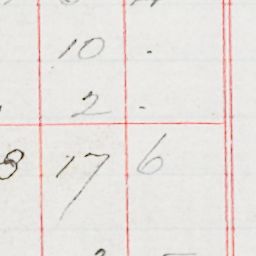 10 .
2 .
8 17 6